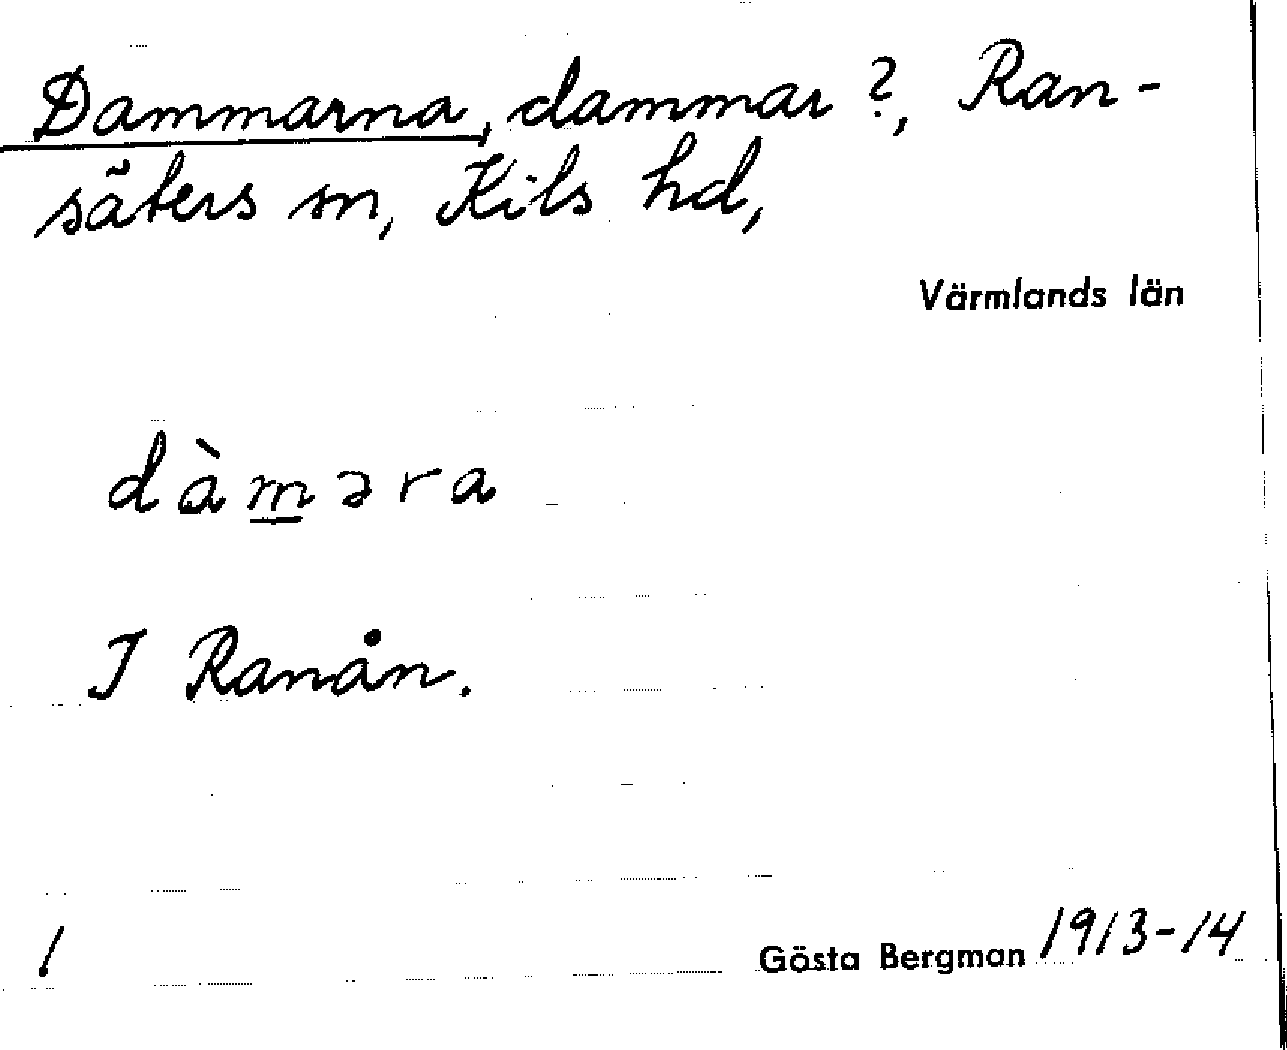 Dammarna, dammar ?, Ran-
säters sn, Kils hd,
Värmlands län
dàm̲əra
I Ranån.
1
Gösta Bergman 1913-14